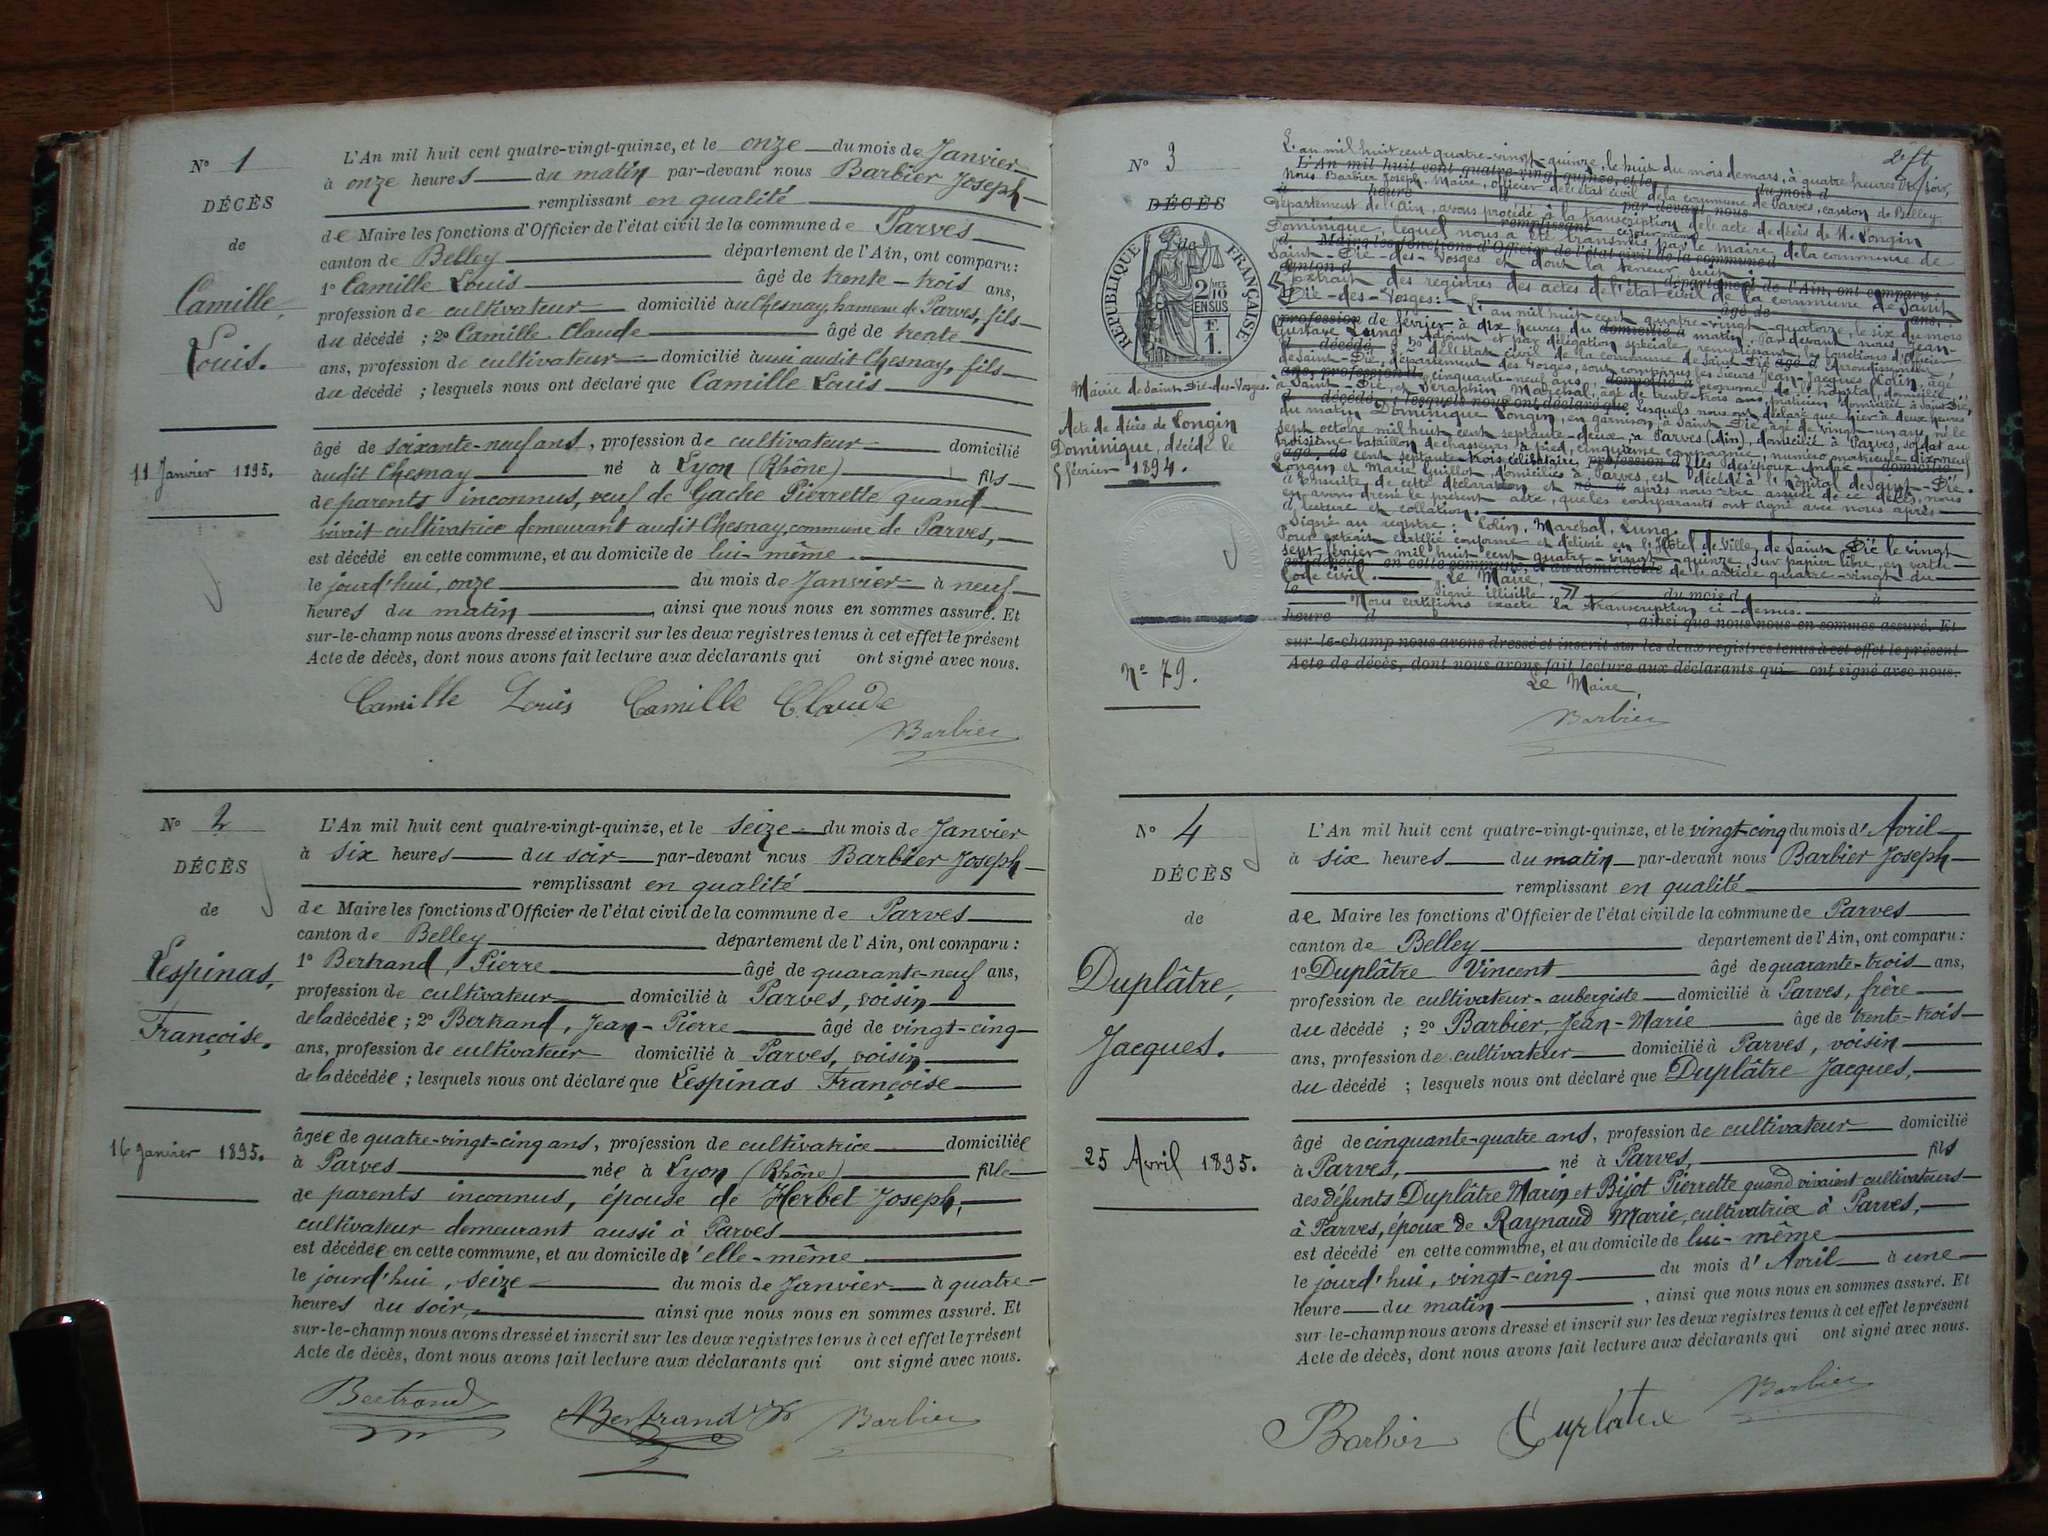 N° 1
DÉCÈS
de
Camille,
Louis.
11 Janvier 1895.
L'An mil huit cent quatre-vingt-quinze, et le onze du mois de Janvier
à onze heures du matin par-devant nous Barbier Joseph
remplissant en qualité
de Maire les fonctions d'Officier de l'état civil de la commune de Parves
canton de Belley département de l'Ain, ont comparu :
1° Camille Louis âgé de trente-trois ans,
profession de cultivateur domicilié au Chesnay, hameau de Parves, fils
du décédé ; 2° Camille Claude âgé de trente
ans, profession de cultivateur domicilié aussi audit Chesnay, fils
du décédé ; lesquels nous ont déclaré que Camille Louis
âgé de soixante-neuf ans, profession de cultivateur domicilié
audit Chesnay né à Lyon (Rhône) fils
de parents inconnus, veuf de Gache Pierrette quand
vivait cultivatrice demeurant audit Chesnay, commune de Parves,
est décédé en cette commune, et au domicile de lui-même
le jourd'hui, onze du mois de Janvier à neuf
heures du matin, ainsi que nous nous en sommes assuré. Et
sur-le-champ nous avons dressé et inscrit sur les deux registres tenus à cet effet le présent
Acte de décès, dont nous avons fait lecture aux déclarants qui ont signé avec nous.
Camille Louis Camille Claude
Barbier
N° 2
DÉCÈS
de
Lespinas,
Françoise.
16 Janvier 1895.
L'An mil huit cent quatre-vingt-quinze, et le seize du mois de Janvier
à six heures du soir par-devant nous Barbier Joseph
remplissant en qualité
de Maire les fonctions d'Officier de l'état civil de la commune de Parves
canton de Belley département de l'Ain, ont comparu :
1° Bertrand, Pierre âgé de quarante-neuf ans,
profession de cultivateur domicilié à Parves, voisin
de la décédée ; 2° Bertrand, Jean-Pierre âgé de vingt-cinq
ans, profession de cultivateur domicilié à Parves, voisin
de la décédée ; lesquels nous ont déclaré que Lespinas Françoise
âgée de quatre-vingt-cinq ans, profession de cultivatrice domiciliée
à Parves née à Lyon (Rhône) fille
de parents inconnus, épouse de Herbet Joseph,
cultivateur demeurant aussi à Parves
est décédée en cette commune, et au domicile d'elle-même
le jourd'hui, seize du mois de Janvier à quatre
heures du soir, ainsi que nous nous en sommes assuré. Et
sur-le-champ nous avons dressé et inscrit sur les deux registres tenus à cet effet le présent
Acte de décès, dont nous avons fait lecture aux déclarants qui ont signé avec nous.
Bertrand Bertrand Barbier
N° 3
DÉCÈS
RÉPUBLIQUE FRANÇAISE
2/10 EN SUS
1 F.
Mairie de Saint-Dié-des-Vosges.
Acte de décès de Longin
Dominique, décédé le
5 février 1894.
N° 79.
L'an mil huit cent quatre-vingt-quinze, le huit du mois de mars, à quatre heures du soir,
Nous Barbier Joseph, Maire, officier de l'état civil de la commune de Parves, canton de Belley
département de l'Ain, avons procédé à la transcription de l'acte de décès de M. Longin
Dominique, lequel nous a été transmis par le maire de la commune de
Saint-Dié-des-Vosges et dont la teneur suit :
Extrait des registres des actes de l'état civil de la commune de Saint
Dié-des-Vosges : L'an mil huit cent quatre-vingt-quatorze, le six du mois
de février, à dix heures du matin, Par devant nous, Jean-
Gustave Lung, Adjoint et par délégation spéciale, remplissant les fonctions d'officier
de l'état civil de la commune de Saint-Dié, arrondissement
de Saint-Dié, département des Vosges, sont comparus les sieurs Jean-Jacques Colin, âgé
de cinquante-neuf ans, économe de l'hôpital, domicilié
à Saint-Dié, et Séraphin Marchal, âgé de trente-trois ans, praticien domicilié à Saint-Dié,
lesquels nous ont déclaré que hier à deux heures
du matin Dominique Longin, en garnison à Saint-Dié, âgé de vingt-un ans, né le
sept octobre mil huit cent septante-deux, à Parves (Ain), domicilié à Parves, soldat au
troisième bataillon de chasseurs à pied, cinquième compagnie, numéro matricule dix-neuf
cent septante-trois, célibataire, fils des époux André
Longin et Marie Guillot, domiciliés à Parves, est décédé à l'hôpital de Saint-Dié.
Ensuite de cette déclaration et après nous être assuré de ce décès, nous
en avons dressé le présent acte, que les comparants ont signé avec nous après
lecture et collation.
Signé au registre : Colin, Marchal, Lung.
Pour extrait certifié conforme et délivré en l'Hôtel de Ville, de Saint-Dié le vingt
sept février mil huit cent quatre-vingt-quinze, sur papier libre, en vertu
de l'article quatre-vingt du
Code civil. Le Maire,
Signé illisible.
Nous certifions exacte la transcription ci-dessus.
heure à , ainsi que nous nous en sommes assuré. Et
sur-le-champ nous avons dressé et inscrit sur les deux registres tenus à cet effet le présent
Acte de décès, dont nous avons fait lecture aux déclarants qui ont signé avec nous.
Le Maire,
Barbier
N° 4
DÉCÈS
de
Duplâtre,
Jacques.
25 Avril 1895.
L'An mil huit cent quatre-vingt-quinze, et le vingt-cinq du mois d'Avril
à six heures du matin par-devant nous Barbier Joseph
remplissant en qualité
de Maire les fonctions d'Officier de l'état civil de la commune de Parves
canton de Belley département de l'Ain, ont comparu :
1° Duplâtre Vincent âgé de quarante-trois ans,
profession de cultivateur-aubergiste domicilié à Parves, frère
du décédé ; 2° Barbier, Jean-Marie âgé de trente-trois
ans, profession de cultivateur domicilié à Parves, voisin
du décédé ; lesquels nous ont déclaré que Duplâtre Jacques,
âgé de cinquante-quatre ans, profession de cultivateur domicilié
à Parves, né à Parves, fils
des défunts Duplâtre Marin et Bijot Pierrette quand vivaient cultivateurs
à Parves, époux de Raynaud Marie, cultivatrice à Parves,
est décédé en cette commune, et au domicile de lui-même
le jourd'hui, vingt-cinq du mois d'Avril à une
heure du matin, ainsi que nous nous en sommes assuré. Et
sur-le-champ nous avons dressé et inscrit sur les deux registres tenus à cet effet le présent
Acte de décès, dont nous avons fait lecture aux déclarants qui ont signé avec nous.
Barbier Duplatre Barbier